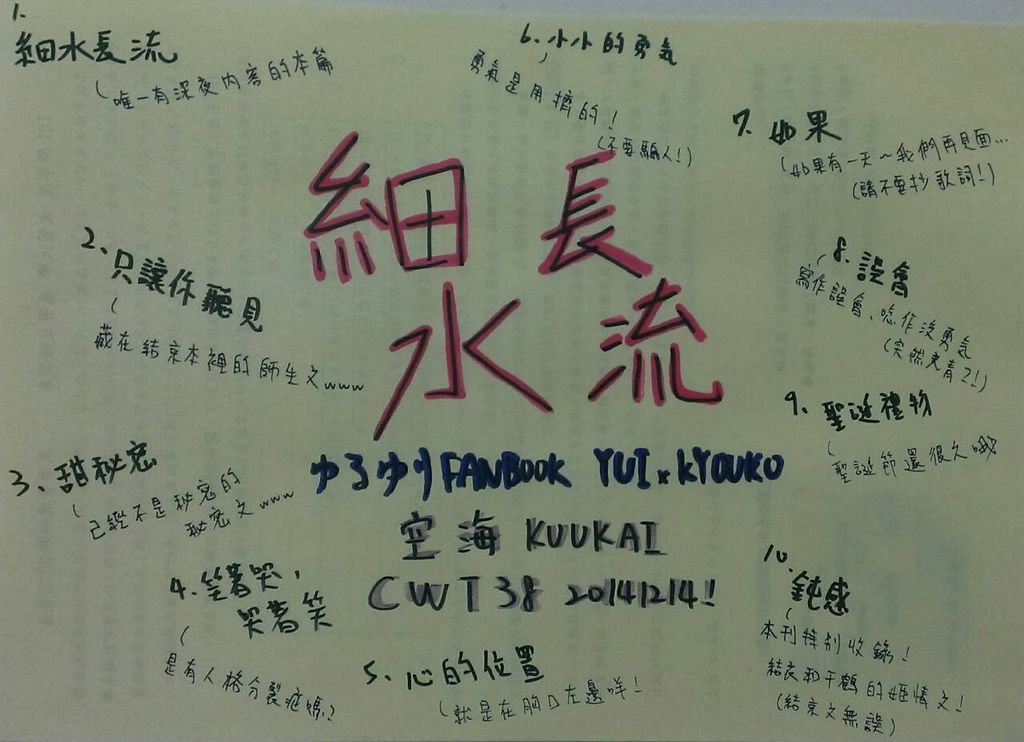 1.
細水長流
(唯一有深夜內容的本篇
2、只讓你聽見
(藏在結京本裡的師生文www
3、甜秘密
(已經不是秘密的
秘密文www
4.笑著哭,
哭著笑
(是有人格分裂症嗎?
5、心的位置
(就是在胸口左邊咩!
6、小小的勇氣
勇氣是用擠的!
(不要騙人!)
7、如果
(如果有一天~我們再見面...
(請不要抄歌詞!)
8.誤會
寫作誤會、唸作沒勇氣
(突然光着了!)
9、聖誕禮物
(聖誕節還很久哦
10、鈍感
(本刊特別收錄!
結衣和千鶴的姬情文!
(結京文無誤)
細長
水流
ゆるゆり FANBOOK YUI x KYOUKO
空海 KUUKAI
CWT38 20141214!